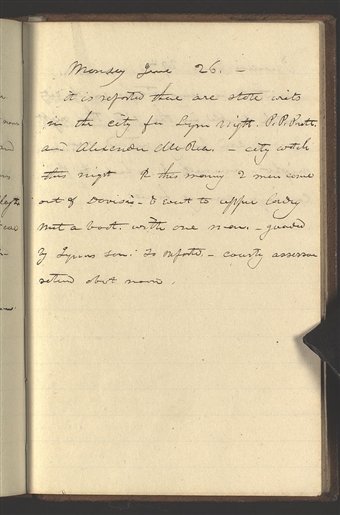 Monday June 26. -
it is reported there are state writs
in the city for Lyon Wight. P. P. Pratt.
and Alexander McRea. - city watch
this night this morning 2 men came
out of Davisis - & went to upper landing
met a boat. with one man. - guarded
by Lyons son: so reported - county assessor
about noon.